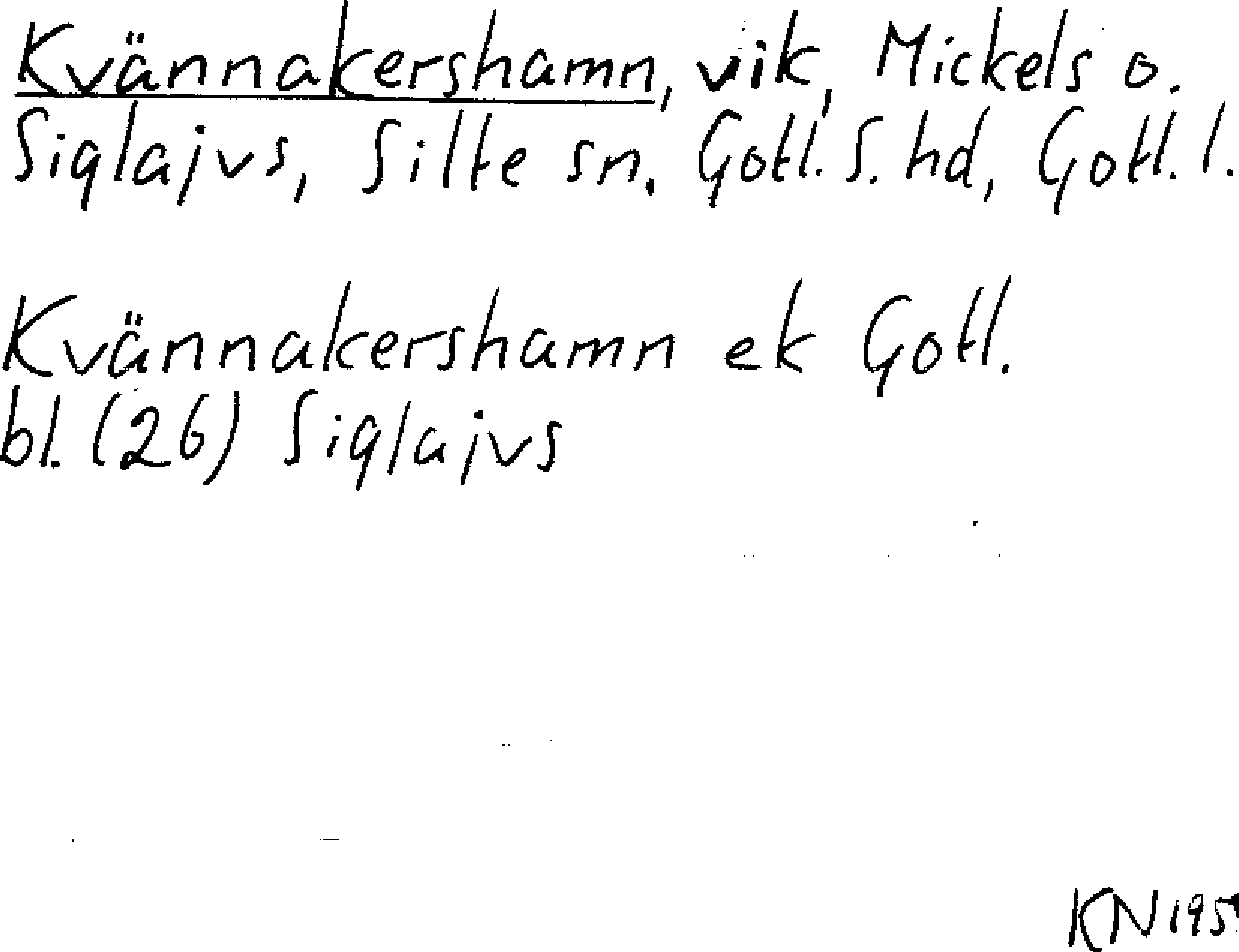 Kvännakershamn, vik, Mickels o.
Siglajvs, Silte sn. Gotl. S. hd, Gotl. l.
Kvännakershamn ek Gotl.
bl. (26) Siglajvs
KN 195